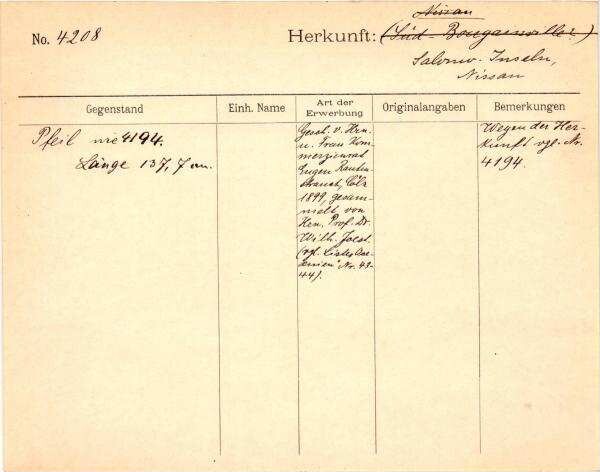 Nissan
No. 4208 Herkunft: (Süd-Bougainville)
Salomo-Inseln,
Nissan
Gegenstand Einh. Name Art der Erwerbung Originalangaben Bemerkungen
Pfeil wie 4194.
Länge 137,7 cm.
Gesch. v. Hrn.
u. Frau Kom-
merzienrat
Eugen Rauten-
strauch, Cöln
1899, gesam-
melt von
Hrn. Prof. Dr.
Wilh. Joest.
(vgl. Liste „Oze-
anien" Nr. 43-
44).
Wegen der Her-
kunft vgl. Nr.
4194.